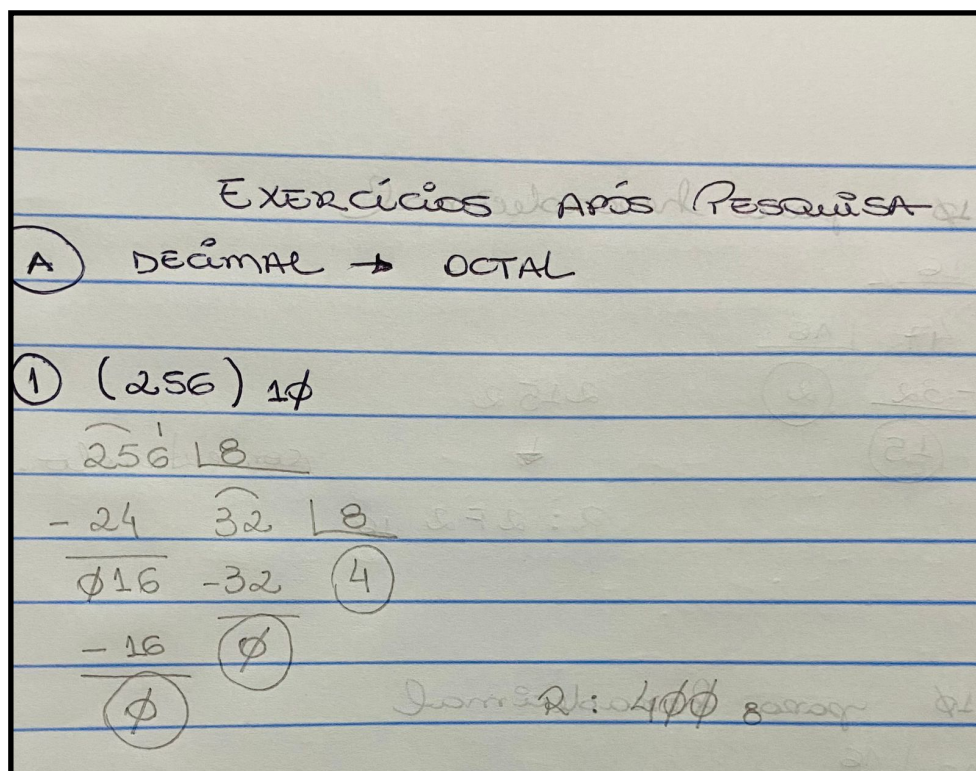 EXERCÍCIOS APÓS PESQUISA
A DECIMAL → OCTAL
1 (256) 10
256' 8
- 24 32 8
016 -32 4
- 16 0
0
R: 400 8